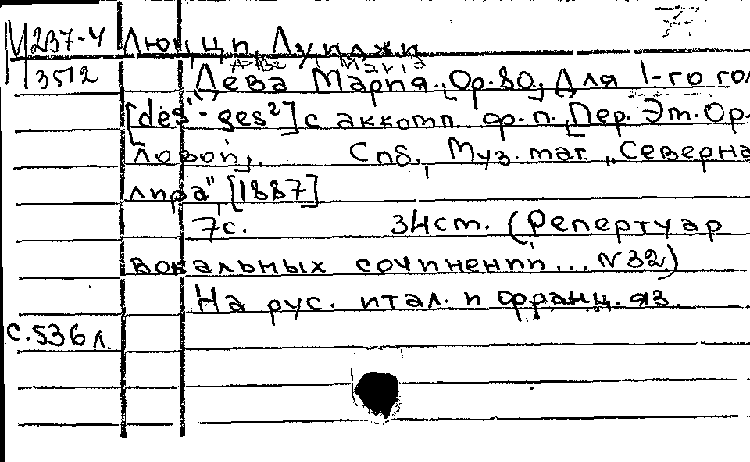 М 237-4 Люцци, Луиджи
3512
Ave Maria
Дева Мария. Op. 80, Для 1-го гол
[des¹-ges²] с аккомп. ф.п., Пер. Эт. Ор-
ловой,. Спб., Муз. маг. „Северна
лира", [1887]
7с. 34 cm. (Репертуар
вокальных сочинений... N 32)
На рус. итал. и франц. яз.
с. 536 л